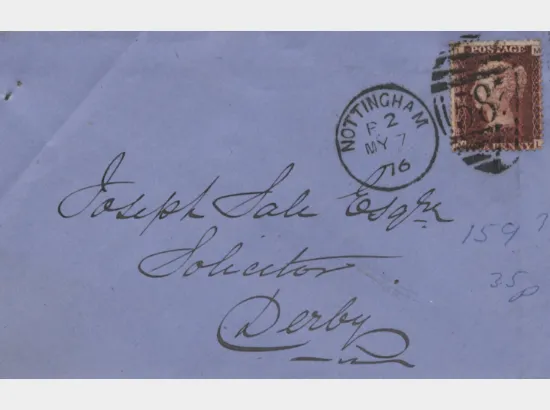 POSTAGE
8
NOTTINGHAM
P 2
MY 7
76
Joseph Sale Esqre
Solicitor
Derby
159 ?
35p